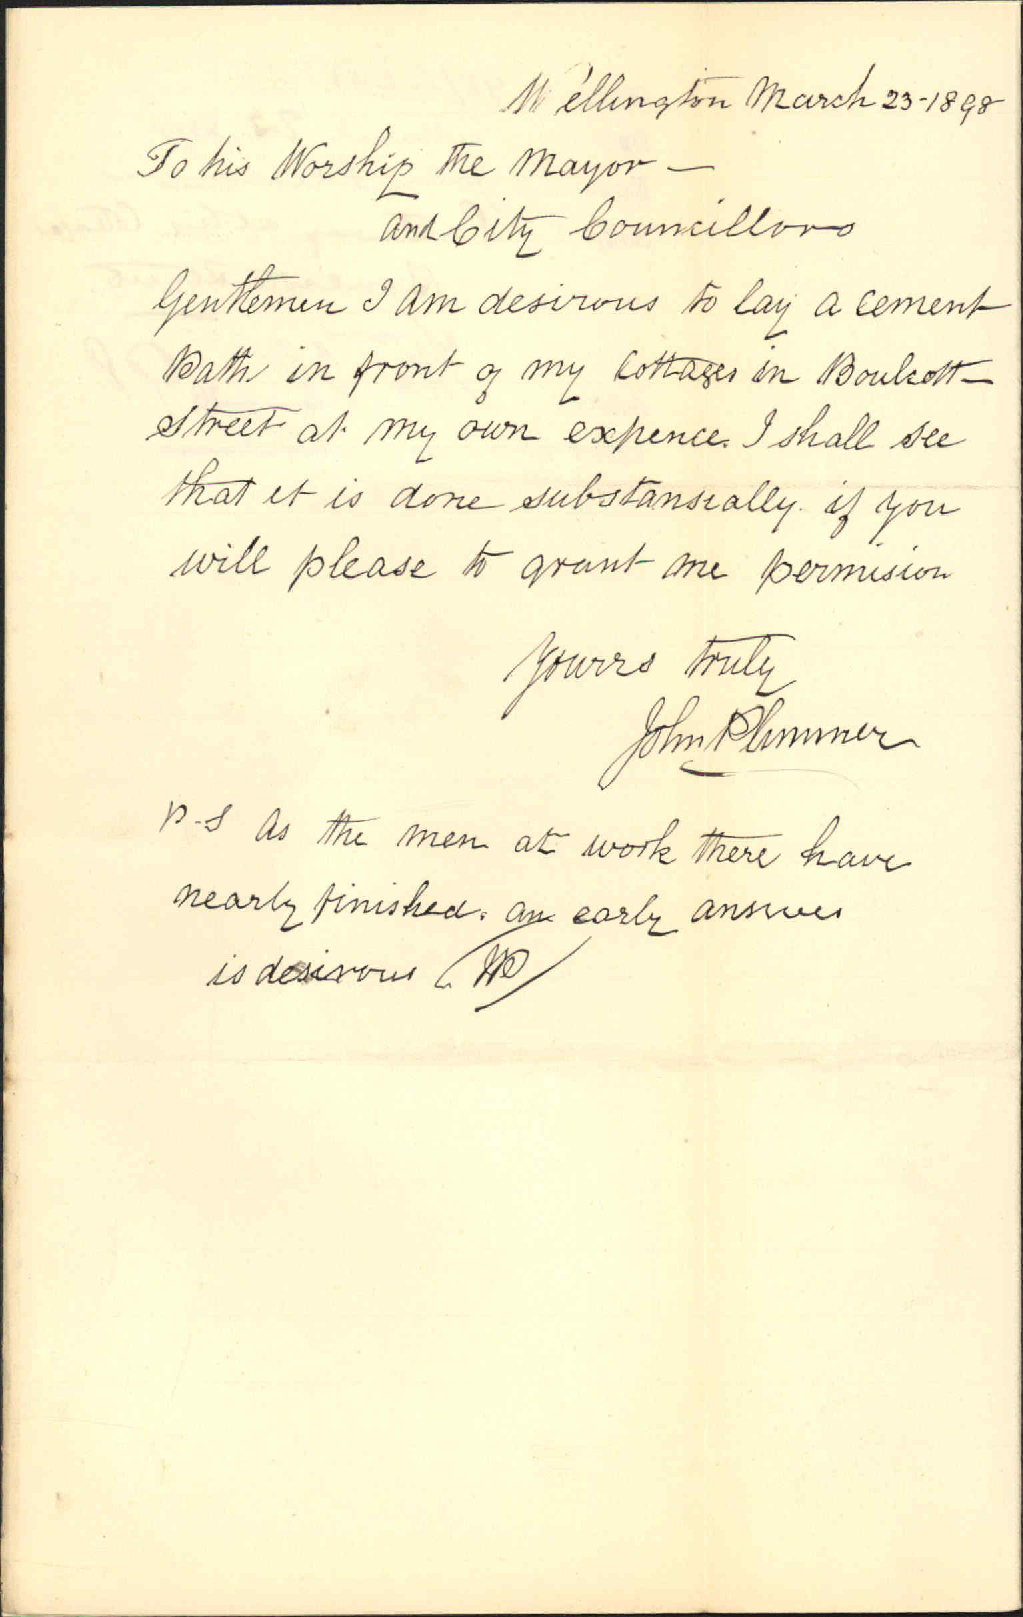 Wellington March 23-1898
To his Worship the Mayor —
and City Councillors
Gentlemen I am desirous to lay a cement
Path in front of my Cottages in Boulcott-
Street at my own expence. I shall see
that it is done substansially. if you
will please to grant me permision
Yours truly
John Plimmer
P-S As the men at work there have
nearly finished. an early answer
is desirous